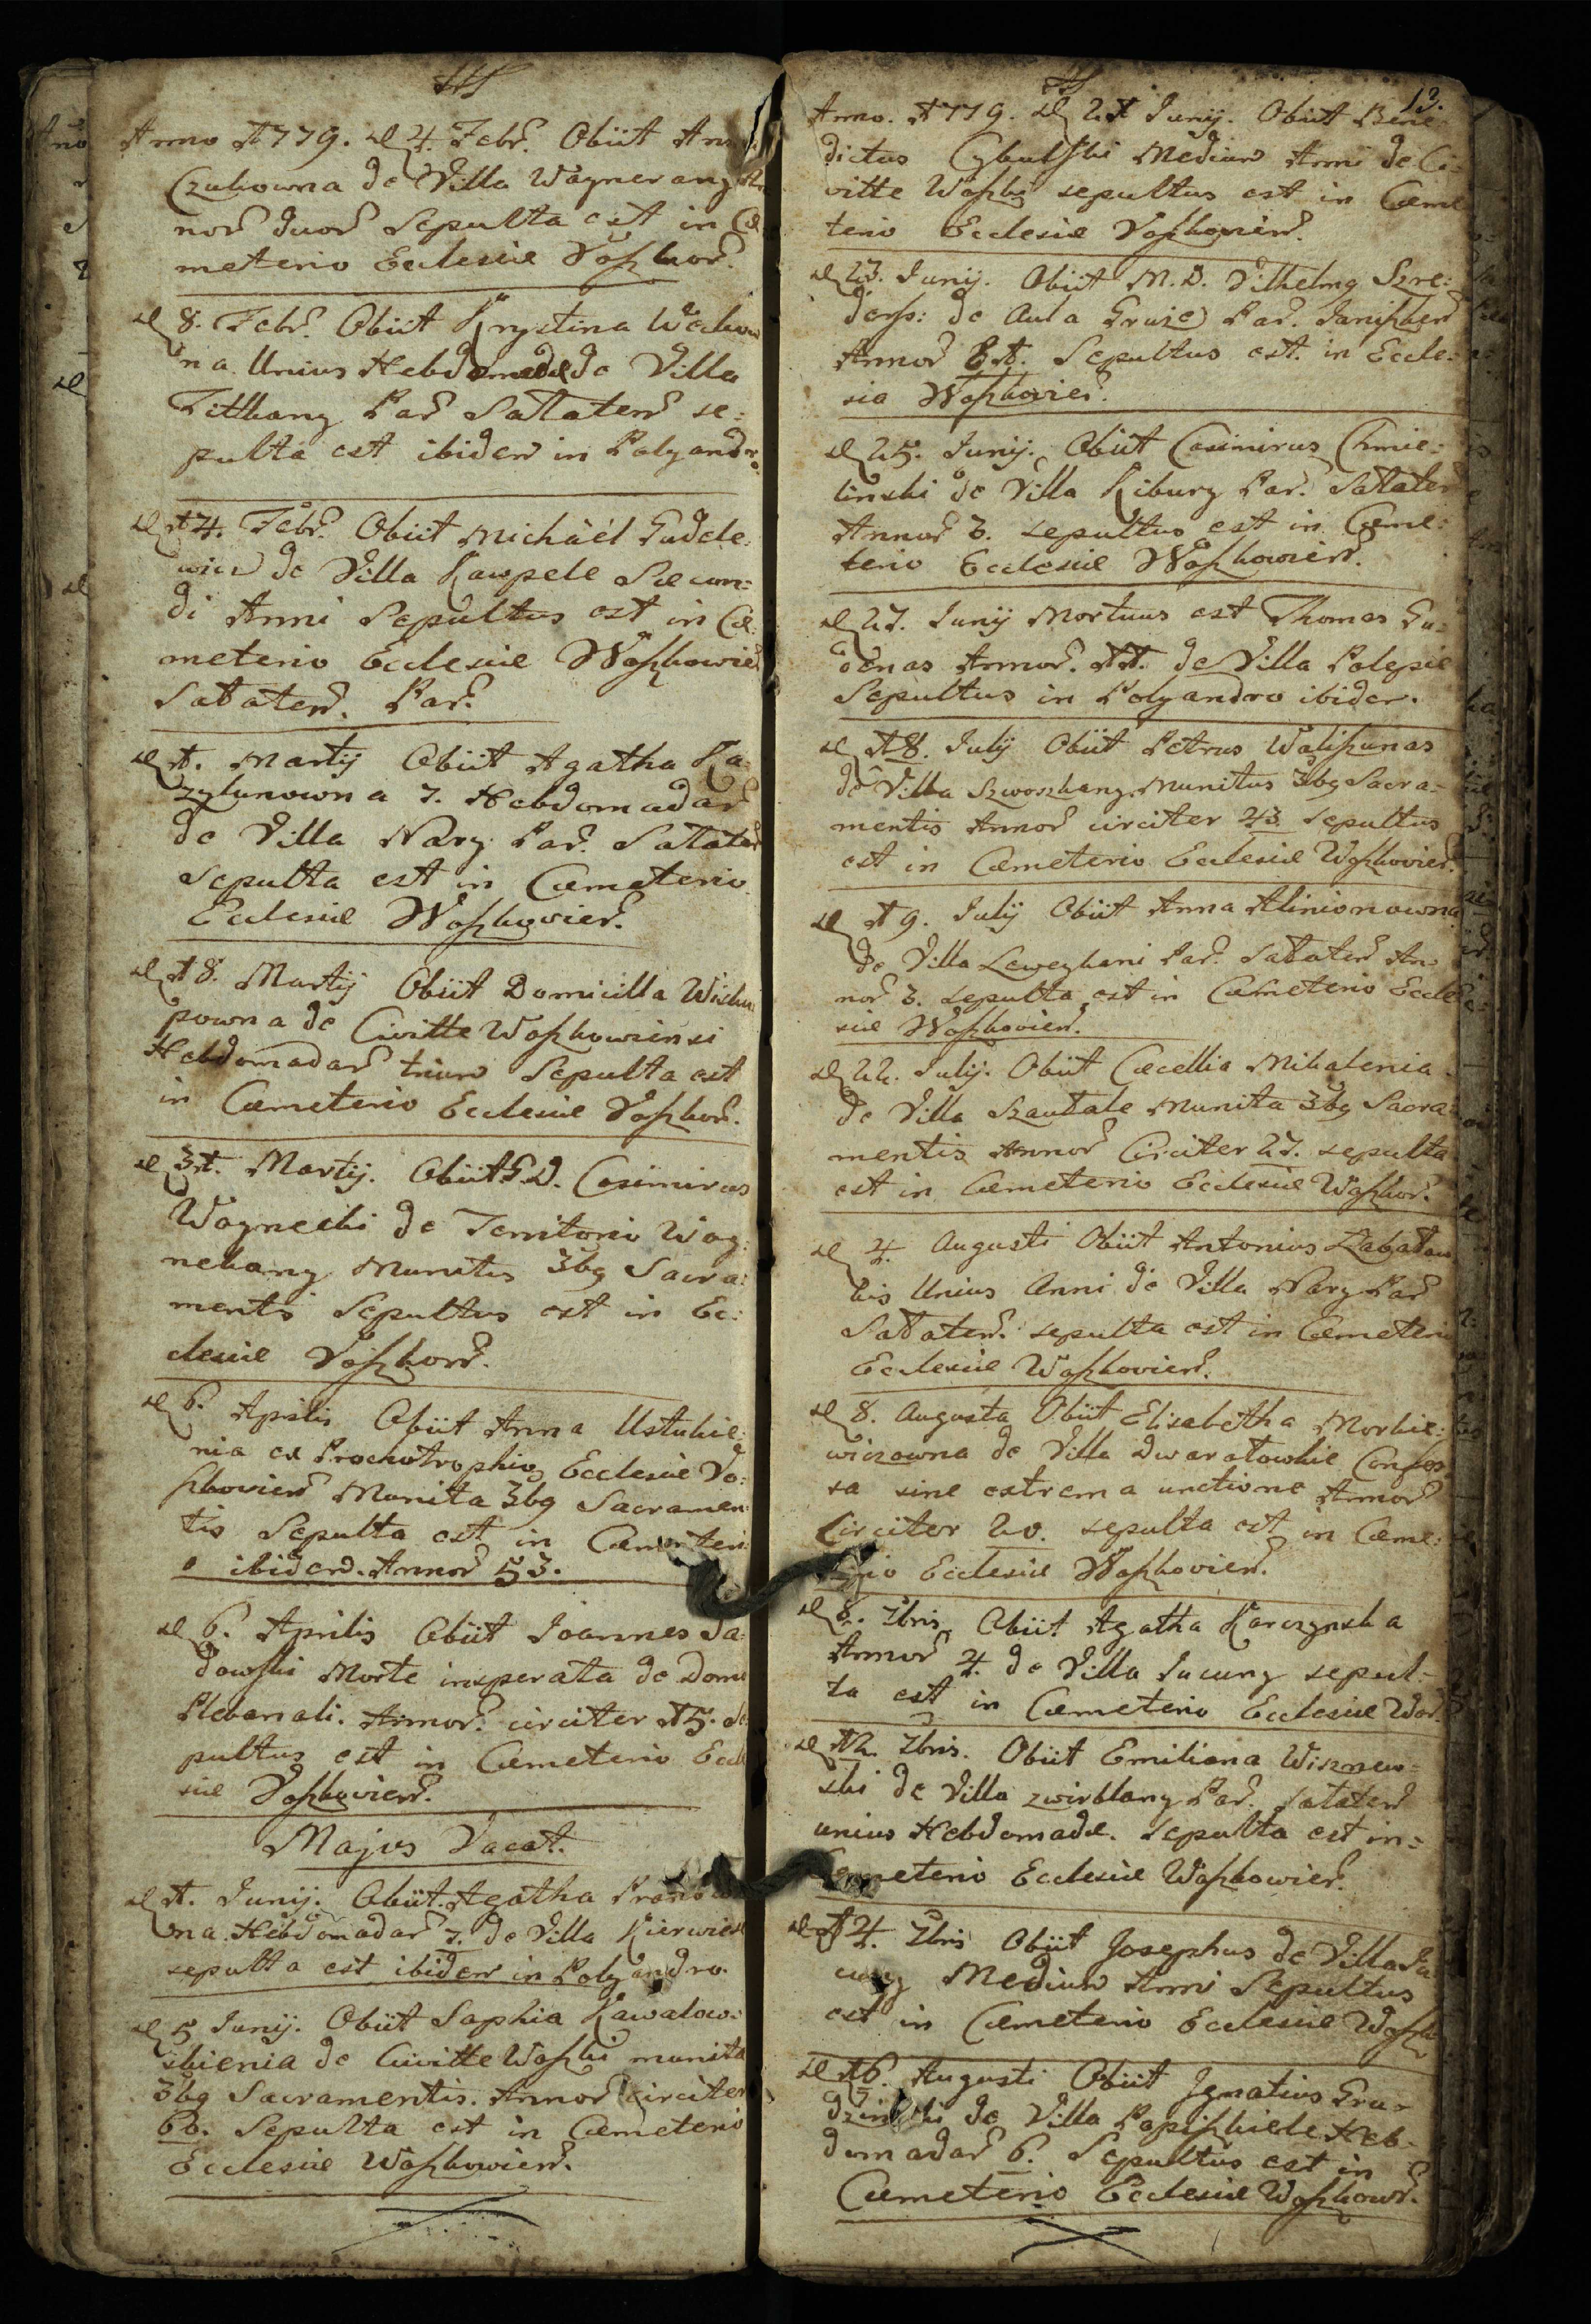 Anno 1779. d 4. Febr. Obiit
Czuhowna de Villa Wagnerany
nor duor Sepulta est in Cæ
meterio Ecclesiæ Voszkov.
d 8. Febr. Obiit Krystina
na Unius Hebdomadæ de Villa
Titkany Par Sataten se=
pulta est ibidem in Polyandr
d 14. Febr. Obiit Michaël Gudele
wicz de Villa Kawpele Secun=
di Anni Sepultus est in Cæ
meterio Ecclesiæ Woszkowien
Sataten. Par.
d 1. Martij Obiit Agatha Ka
zylunowna 7. Hebdomadar
de Villa Nary Par. Sataten
Sepulta est in Cæmeterio
Ecclesiæ Woszkowien.
d 18. Martij Obiit Domicilla
powna de Civitte Woszkowiensi
Hebdomadar trium Sepulta est
in Cæmeterio Ecclesiæ Voszkov.
d 31. Martij. Obiit G.D. Casimirus
Wagneski de Territorio Wag
nekany Munitus 3bg Sacra=
mentis Sepultus est in Ec=
clesiæ Voszkov.
d 6. Aprilis Obiit Anna Ustukie
nia ex Prochotrophio Ecclesiæ Vo=
szkovien Munita 3bg Sacramen
tis Sepulta est in Cæmeteri
o ibidem. Annor 53.
d 6. Aprilis Obiit Joannes Sa
dowski Morte insperata de Domo
Plebanali. Annor. circiter 15. Se
pultus est in Cæmeterio Eccle
siæ Voszkovien.
Majus Vacat.
d 1. Junij. Obiit Agatha
na Hebdomadar 7. de Villa
sepulta est ibidem in Polyandro.
d 5 Junij. Obiit Sophia Kawalow=
skienia de Civitte Woszki munita
3bg Sacramentis. Annor circiter
60. Sepulta est in Cæmeterio
Ecclesiæ Woszkowien.
13.
Anno. 1779. d 21 Junij. Obiit Bene
dictus Cybulski Medium Anni de Ci=
vitte Woszki sepultus est in Cæme
terio Ecclesiæ Voszkovien.
d 23. Junij. Obiit M.D. Vilhelmg Szre=
ders: de Aula Gruże Par. Janiszken
Annor 61. Sepultus est in Eccle=
sia Woszkovien.
d 25. Junij. Obiit Casimirus Chmie=
linski de Villa Kiburg Par. Sataten
Annor 3. sepultus est in Cæme=
terio Ecclesiæ Woszkowien.
d 27. Junij Mortuus est Thomas Gu=
denas Annor. 11. de Villa Polepie
Sepultus in Polyandro ibidem.
d 18. Julij Obiit Petrus Waliszunas
de Villa Szwoszkany Munitus 3bg Sacra=
mentis Annor circiter 43. sepultus
est in Cæmeterio Ecclesiæ Woszkovien.
d 19. Julij Obiit Anna Alinionowna
de Villa Leweykani Par. Sataten An
nor 3. sepulta est in Cæmeterio Eccle
siæ Woszkovien.
d 22. Julij. Obiit Cæcellia Mikalenia
de Villa Szautale Munita 3bg Sacra
mentis Annor Circiter 27. sepulta
est in Cæmeterio Ecclesiæ Woszkov.
d 4. Augusti Obiit Antonius
kis Unius Anni de Villa Nary Par
Sataten. sepulta est in Cæmeterio
Ecclesiæ Woszkovien.
d 8. Augusta Obiit Elisabetha Morkie=
wiczowna de Villa Dwaratowkie Confes
sa sine extrema unctione Annor
Circiter 20. sepulta est in Cæme=
terio Ecclesiæ Woszkovien.
d 8. 7bris Obiit Agatha Karczynska
Annor 4. de Villa Jucuny sepul=
ta est in Cæmeterio Ecclesiæ Wos
d 12. 7bris. Obiit Emiliana Wisznew=
ski de Villa zwirblany Par. Sataten
unius Hebdomadæ. Sepulta est in=
Cæmeterio Ecclesiæ Woszkowien.
d 14. 7bris Obiit Josephus de Villa
Medium Anni Sepultus
est in Cæmeterio Ecclesiæ Woszk
d 16. Augusti Obiit Ignatius Gru=
dzinski de Villa Popiszkiele Heb=
domadar 6. Sepultus est in
Cæmeterio Ecclesiæ Woszkow.